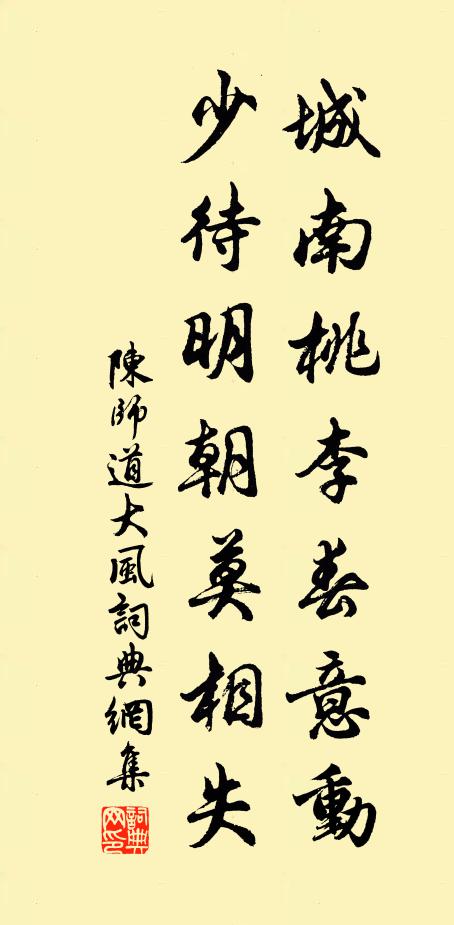 城南桃李春意動
少待明朝莫相失
陳師道大風詞典網集
詞典網印